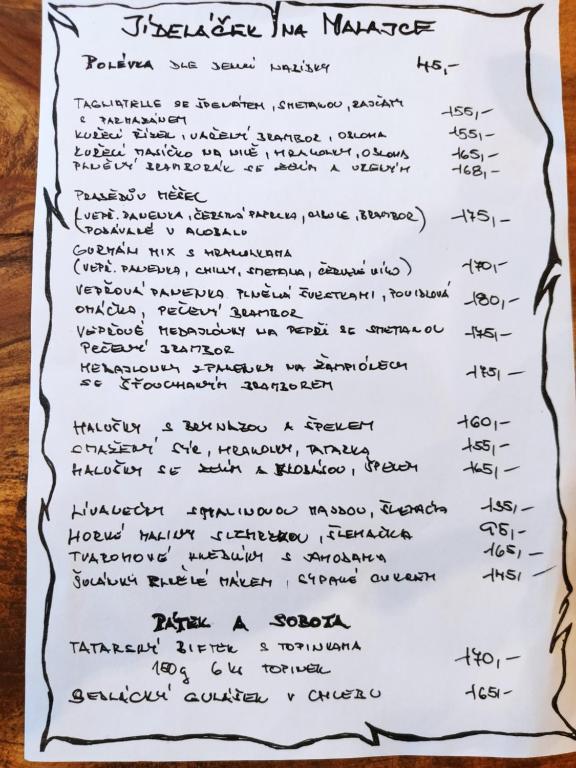 JÍDELÁČEK NA MALAJCE
POLÉVKA DLE DENNÍ NABÍDKY 45,-
TAGLIATELLE SE ŠPENÁTEM, SMETANOU, RAJČATY 155,-
S PARMAZÁNEM
KUŘECÍ ŘÍZEK, VAŘENÝ BRAMBOR, OBLOHA 155,-
KUŘECÍ MASÍČKO NA NIVĚ, HRANOLKY, OBLOHA 165,-
PLNĚNÝ BRAMBORÁK SE ZELÍM A UZENÝM 168,-
PRASEDŮV MĚŠEC
(VEPŘ. PANENKA, ČERSTVÁ PAPRIKA, CIBULE, BRAMBOR) 175,-
(PODÁVANÉ V ALOBALU
GURMÁN MIX S HRANOLKAMA
(VEPŘ. PANENKA, CHILLY, SMETANA, ČERVENÉ VÍNO) 170,-
VEPŘOVÁ PANENKA PLNĚNÁ ŠVESTKAMI, POVIDLOVÁ 180,-
OMÁČKA, PEČENÝ BRAMBOR
VEPŘOVÉ MEDAJLONKY NA PEPŘI SE SMETANOU 175,-
PEČENÝ BRAMBOR
MEDAJLONKY Z PANENKY NA ŽAMPIÓNECH 175,-
SE ŠŤOUCHANÝM BRAMBOREM
HALUŠKY S BRYNZOU A ŠPEKEM 160,-
SMAŽENÝ SÝR, HRANOLKY, TATARKA 155,-
HALUŠKY SE ZELÍM A KLOBÁSOU, ŠPEKEM 165,-
LÍVANEČKY S MALINOVOU HADDOU, ŠLEHAČKA 135,-
HORKÉ MALINY S ZMRZKOU, ŠLEHAČKA 95,-
TVAROHOVÉ KNEDLÍKY S JAHODAMA 165,-
ŠULÁNKY PLNĚNÉ MÁKEM, SYPANÉ CUKREM 145,-
PÁTEK A SOBOTA
TATARSKÝ BIFTEK S TOPINKAMA 170,-
150g 6 ks TOPINEK
SEDLÁCKÝ GULÁŠEK V CHLEBU 165,-